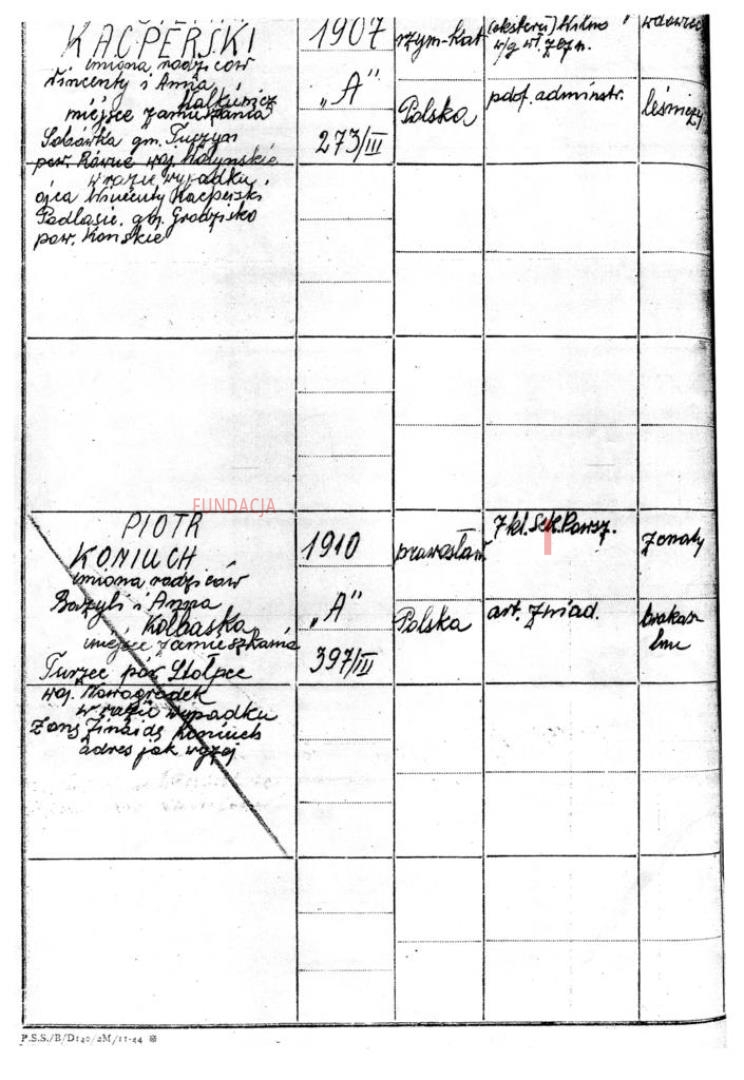 KACPERSKI
imiona rodziców
Wincenty i Anna
Małkiewicz
miejsce zamieszkania
gm. Tuczyn
pow. Równe woj. Wołyńskie
w razie wypadku
ojca Wincenty Kacperski
Podlasie, gm. Grodzisko
pow. Końskie
1907
„A”
273/III
rzym-kat
Polska
w/g wł. zezn.
pdof. adminstr.
wdowiec
leśniczy
FUNDACJA
PIOTR
KONIUCH
imiona rodziców
Bazyli i Anna
Kolbaska
miejsce zamieszkania
Turzec pow Stołpce
woj. Nowogródek
w razie wypadku
Żonę Zinaidę Koniuch
adres jak wyżej
1910
„A”
397/III
prawosław
Polska
7 kl. Szk. Powsz.
art. żniad.
żonaty
brakarz
P.S.S./B/D120/2M/11-44